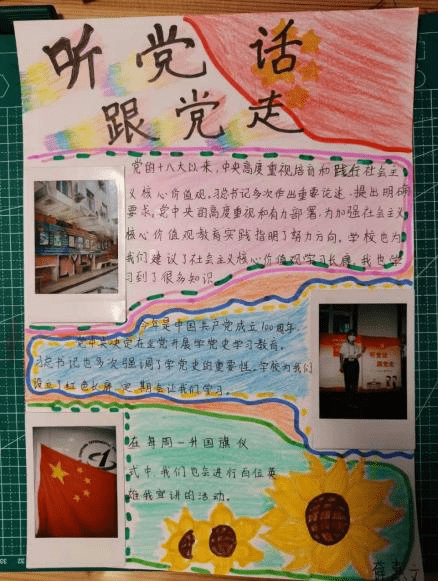 听党话
跟党走
党的十八大以来，中央高度重视培育和践行社会主
义核心价值观。习总书记多次作出重要论述、提出明确
要求。党中央的高度重视和有力部署，为加强社会主义
核心价值观教育实践指明了努力方向。学校也为
我们建设了社会主义核心价值观学习长廊，我也学
习到了很多知识
今年是中国共产党成立100周年，
党中央决定在全党开展学党史学习教育。
习总书记也多次强调了学党史的重要性。学校为我们
设立了红色长廊，定期会让我们学习。
听党话
跟党走
在每周一升国旗仪
式中，我们也会进行百位英
雄我宣讲的活动。